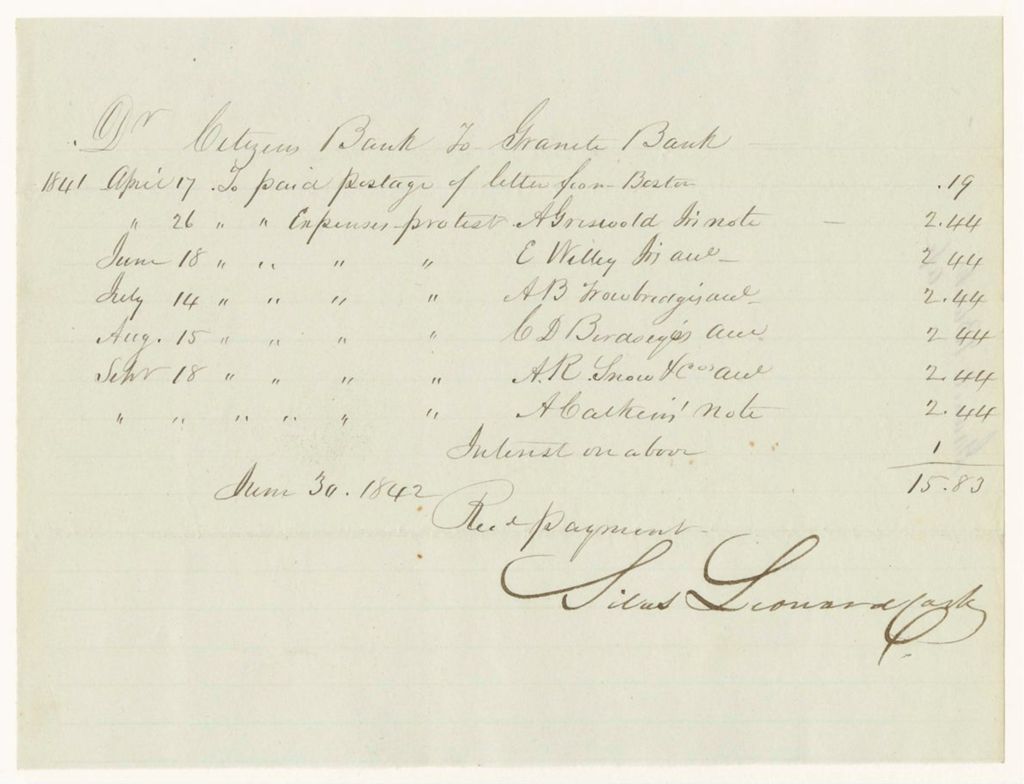 Dr Citizens Bank To Granite Bank
1841 April 17 To paid postage of letter from Boston .19
" 26 " " Expenses protest A Griswold Jr's note 2.44
June 18 " " " " E Willey Jr's 2 44
July 14 " " " " A B Trowbridge's 2.44
Aug. 15 " " " " C D Birdseye's 2 44
Sept 18 " " " " A. R. Snow & Cos 2.44
" " " " " " A Calkins' note 2.44
Interest on above 1
June 30. 1842 15.83
Recd payment
Silas Leonard Cash